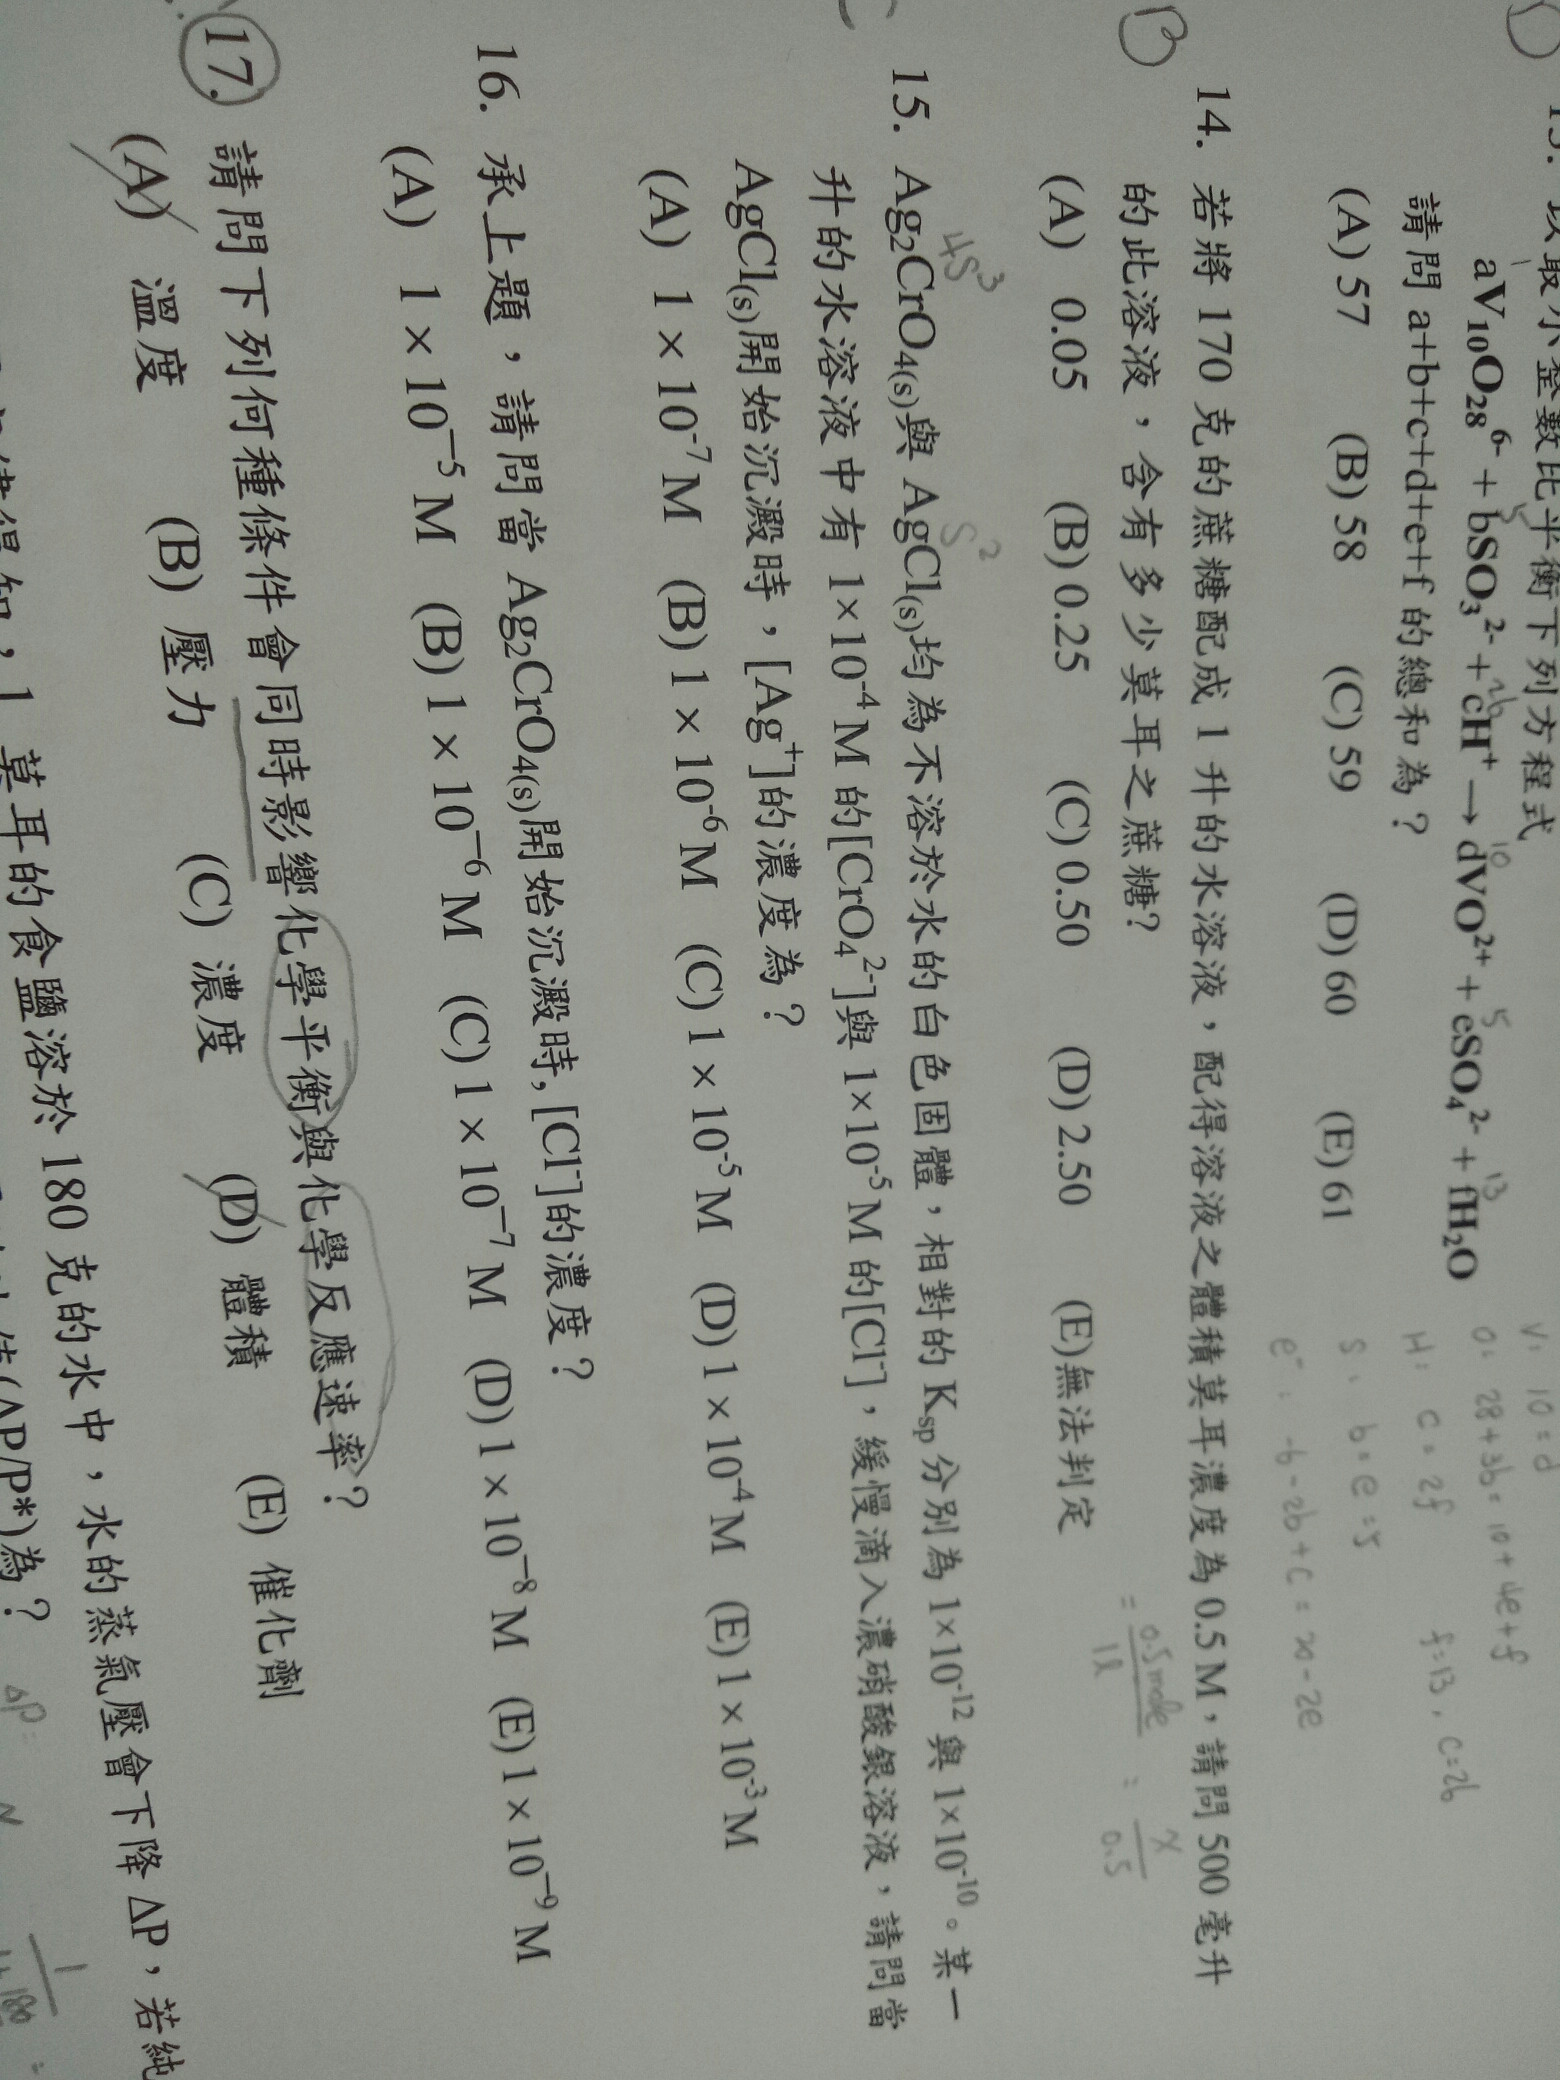 取小整數比平衡下列方程式
aV₁₀O₂₈⁶⁻ + bSO₃²⁻ + cH⁺ → dVO²⁺ + eSO₄²⁻ + fH₂O
請問 a+b+c+d+e+f 的總和為？
(A) 57 (B) 58 (C) 59 (D) 60 (E) 61
V: 10 = d
O: 28+3b = 10+4e+f
H: c = 2f f=13, c=26
S: b=e=5
e⁻: -6-2b+c = 20-2e
B
14. 若將 170 克的蔗糖配成 1 升的水溶液，配得溶液之體積莫耳濃度為 0.5 M，請問 500 毫升
的此溶液，含有多少莫耳之蔗糖?
= 0.5mole / 1l = x / 0.5
(A) 0.05 (B) 0.25 (C) 0.50 (D) 2.50 (E)無法判定
4S³ S²
15. Ag₂CrO₄(s)與 AgCl(s)均為不溶於水的白色固體，相對的 Ksp 分別為 1×10⁻¹² 與 1×10⁻¹⁰。某一
升的水溶液中有 1×10⁻⁴ M 的[CrO₄²⁻]與 1×10⁻⁵ M 的[Cl⁻]，緩慢滴入濃硝酸銀溶液，請問當
AgCl(s)開始沉澱時，[Ag⁺]的濃度為？
(A) 1 × 10⁻⁷ M (B) 1 × 10⁻⁶ M (C) 1 × 10⁻⁵ M (D) 1 × 10⁻⁴ M (E) 1 × 10⁻³ M
16. 承上題，請問當 Ag₂CrO₄(s)開始沉澱時, [Cl⁻]的濃度？
(A) 1 × 10⁻⁵ M (B) 1 × 10⁻⁶ M (C) 1 × 10⁻⁷ M (D) 1 × 10⁻⁸ M (E) 1 × 10⁻⁹ M
17. 請問下列何種條件會同時影響化學平衡與化學反應速率？
(A) 溫度 (B) 壓力 (C) 濃度 (D) 體積 (E) 催化劑
1 莫耳的食鹽溶於 180 克的水中，水的蒸氣壓會下降 ΔP，若純
(ΔP/P*)為？